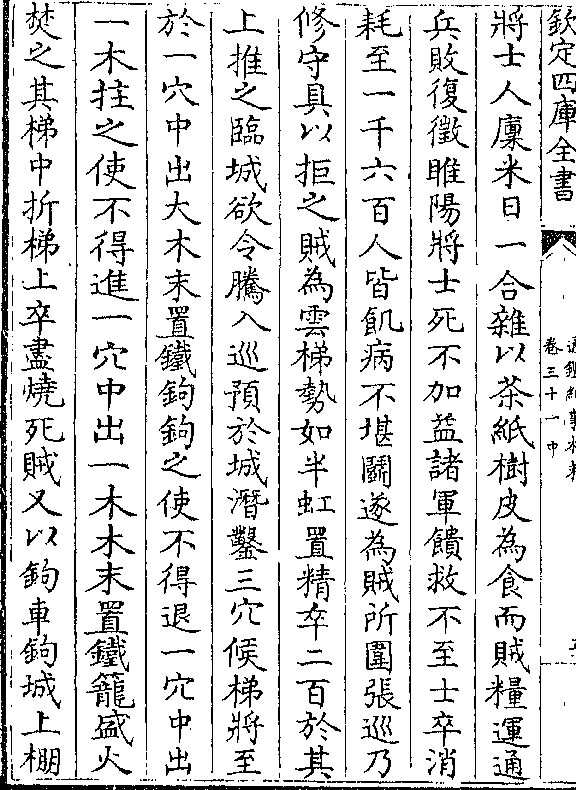 欽定四庫全書
通鑑紀事本末
卷三十一中
將士人廩米日一合雜以茶紙樹皮為食而賊糧運通
兵敗復徵睢陽將士死不加益諸軍饋救不至士卒消
耗至一千六百人皆飢病不堪鬬遂為賊所圍張巡乃
修守具以拒之賊為雲梯勢如半虹置精卒二百於其
上推之臨城欲令騰入巡預於城潛鑿三穴候梯將至
於一穴中出大木末置鐵鉤鉤之使不得退一穴中出
一木拄之使不得進一穴中出一木木末置鐵籠盛火
焚之其梯中折梯上卒盡燒死賊又以鉤車鉤城上棚